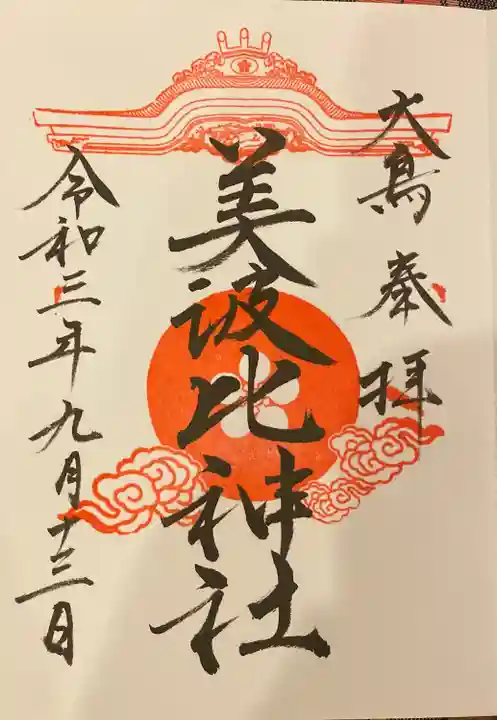 大鳥 奉拝
美波比神社
令和三年九月十三日